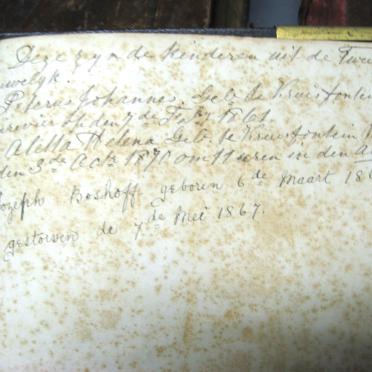 Deze zyn de Kinderen uit de Twee
uwelyk.
Petrus Johannes. Geb. te Kruisfontein
den 7 de Feby 1861
Aletta Helena Geb. te Kruisfontein
den 3 de Octr 1870 om 11 uren in den
Jozeph Boshoff geboren 6 de Maart 18
gestorven de 7 de Mei 1867.